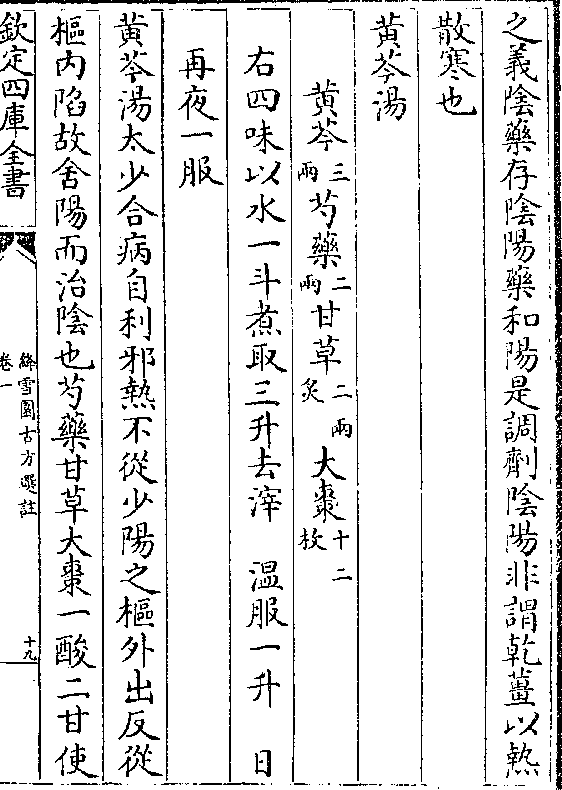 之義陰藥存陰陽藥和陽是調劑陰陽非謂乾薑以熱
散寒也
黄芩湯
黄芩三兩芍藥二兩甘草二兩炙大棗十二枚
右四味以水一斗煮取三升去滓 温服一升 日
再夜一服
黄芩湯太少合病自利邪熱不從少陽之樞外出反從
樞内陷故舍陽而治陰也芍藥甘草大棗一酸二甘使
欽定四庫全書
絳雪園古方選註
卷一
十九